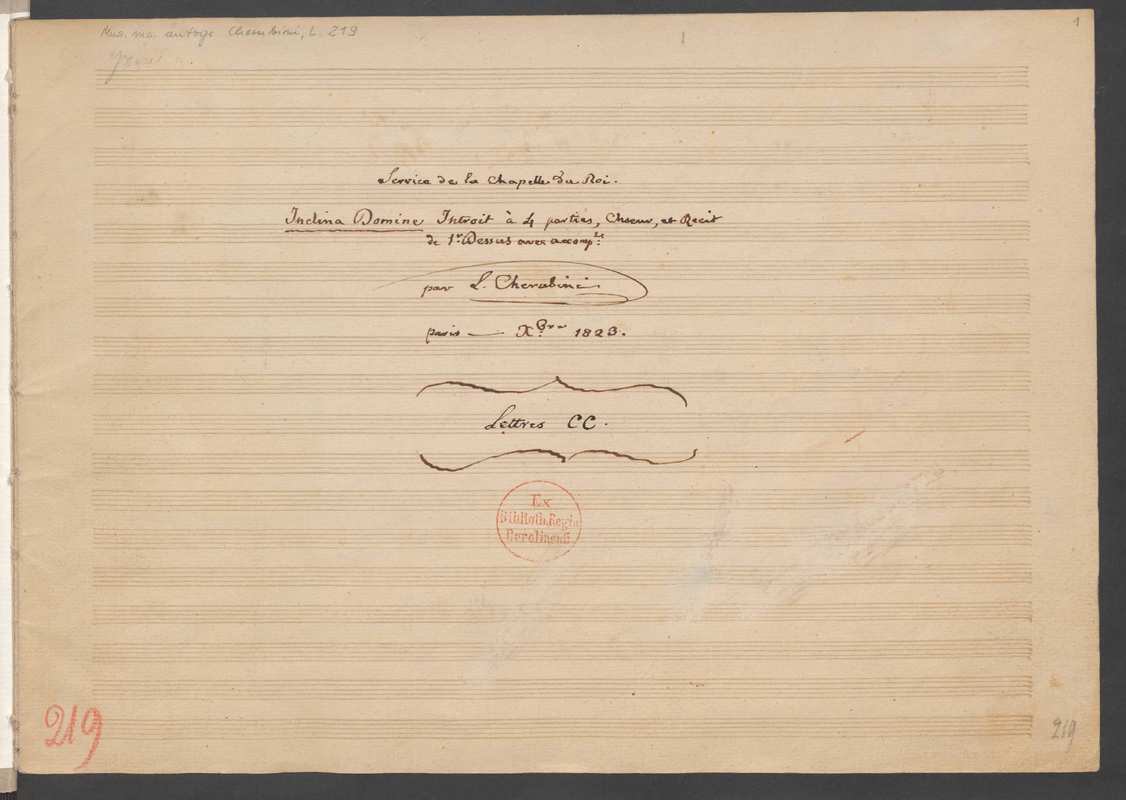 Mus. ms. autogr. Cherubini, L. 219
1
Service de la Chapelle du Roi.
Inclina Domine Introit à 4 parties, Choeur, et Récit
de 1r. Dessus avec accomp.t
par L. Cherubini
paris — Xbre 1823.
Lettres CC.
Ex
Biblioth. Regia
Berolinensi
219
219